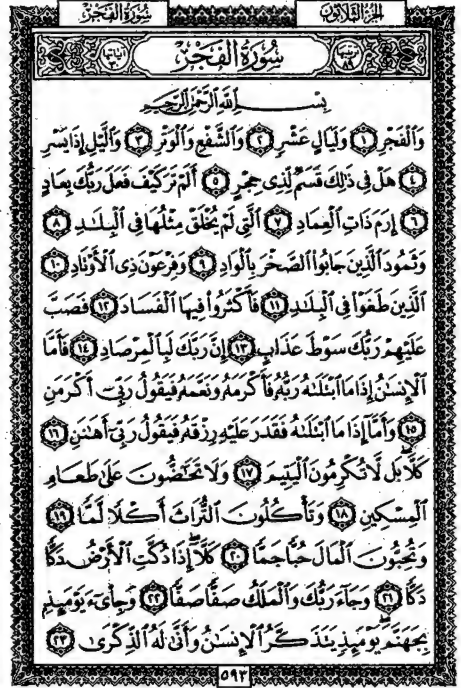 سُورَةُ الفَجْرِ الجُزْءُ الثَّلَاثُونَ
سُورَةُ الفَجْرِ
بِسْمِ اللَّهِ الرَّحْمَٰنِ الرَّحِيمِ
وَالْفَجْرِ ١ وَلَيَالٍ عَشْرٍ ٢ وَالشَّفْعِ وَالْوَتْرِ ٣ وَاللَّيْلِ إِذَا يَسْرِ
٤ هَلْ فِي ذَٰلِكَ قَسَمٌ لِّذِي حِجْرٍ ٥ أَلَمْ تَرَ كَيْفَ فَعَلَ رَبُّكَ بِعَادٍ
٦ إِرَمَ ذَاتِ الْعِمَادِ ٧ الَّتِي لَمْ يُخْلَقْ مِثْلُهَا فِي الْبِلَٰدِ ٨
وَثَمُودَ الَّذِينَ جَابُوا الصَّخْرَ بِالْوَادِ ٩ وَفِرْعَوْنَ ذِي الْأَوْتَادِ ١٠
الَّذِينَ طَغَوْا فِي الْبِلَٰدِ ١١ فَأَكْثَرُوا فِيهَا الْفَسَادَ ١٢ فَصَبَّ
عَلَيْهِمْ رَبُّكَ سَوْطَ عَذَابٍ ١٣ إِنَّ رَبَّكَ لَبِالْمِرْصَادِ ١٤ فَأَمَّا
الْإِنسَٰنُ إِذَا مَا ابْتَلَىٰهُ رَبُّهُ فَأَكْرَمَهُ وَنَعَّمَهُ فَيَقُولُ رَبِّي أَكْرَمَنِ
١٥ وَأَمَّا إِذَا مَا ابْتَلَىٰهُ فَقَدَرَ عَلَيْهِ رِزْقَهُ فَيَقُولُ رَبِّي أَهَٰنَنِ ١٦
كَلَّا بَل لَّا تُكْرِمُونَ الْيَتِيمَ ١٧ وَلَا تَحَٰضُّونَ عَلَىٰ طَعَامِ
الْمِسْكِينِ ١٨ وَتَأْكُلُونَ التُّرَاثَ أَكْلًا لَّمًّا ١٩
وَتُحِبُّونَ الْمَالَ حُبًّا جَمًّا ٢٠ كَلَّا إِذَا دُكَّتِ الْأَرْضُ دَكًّا
دَكًّا ٢١ وَجَاءَ رَبُّكَ وَالْمَلَكُ صَفًّا صَفًّا ٢٢ وَجِايءَ يَوْمَئِذٍ
بِجَهَنَّمَ يَوْمَئِذٍ يَتَذَكَّرُ الْإِنسَٰنُ وَأَنَّىٰ لَهُ الذِّكْرَىٰ ٢٣
٥٩٣